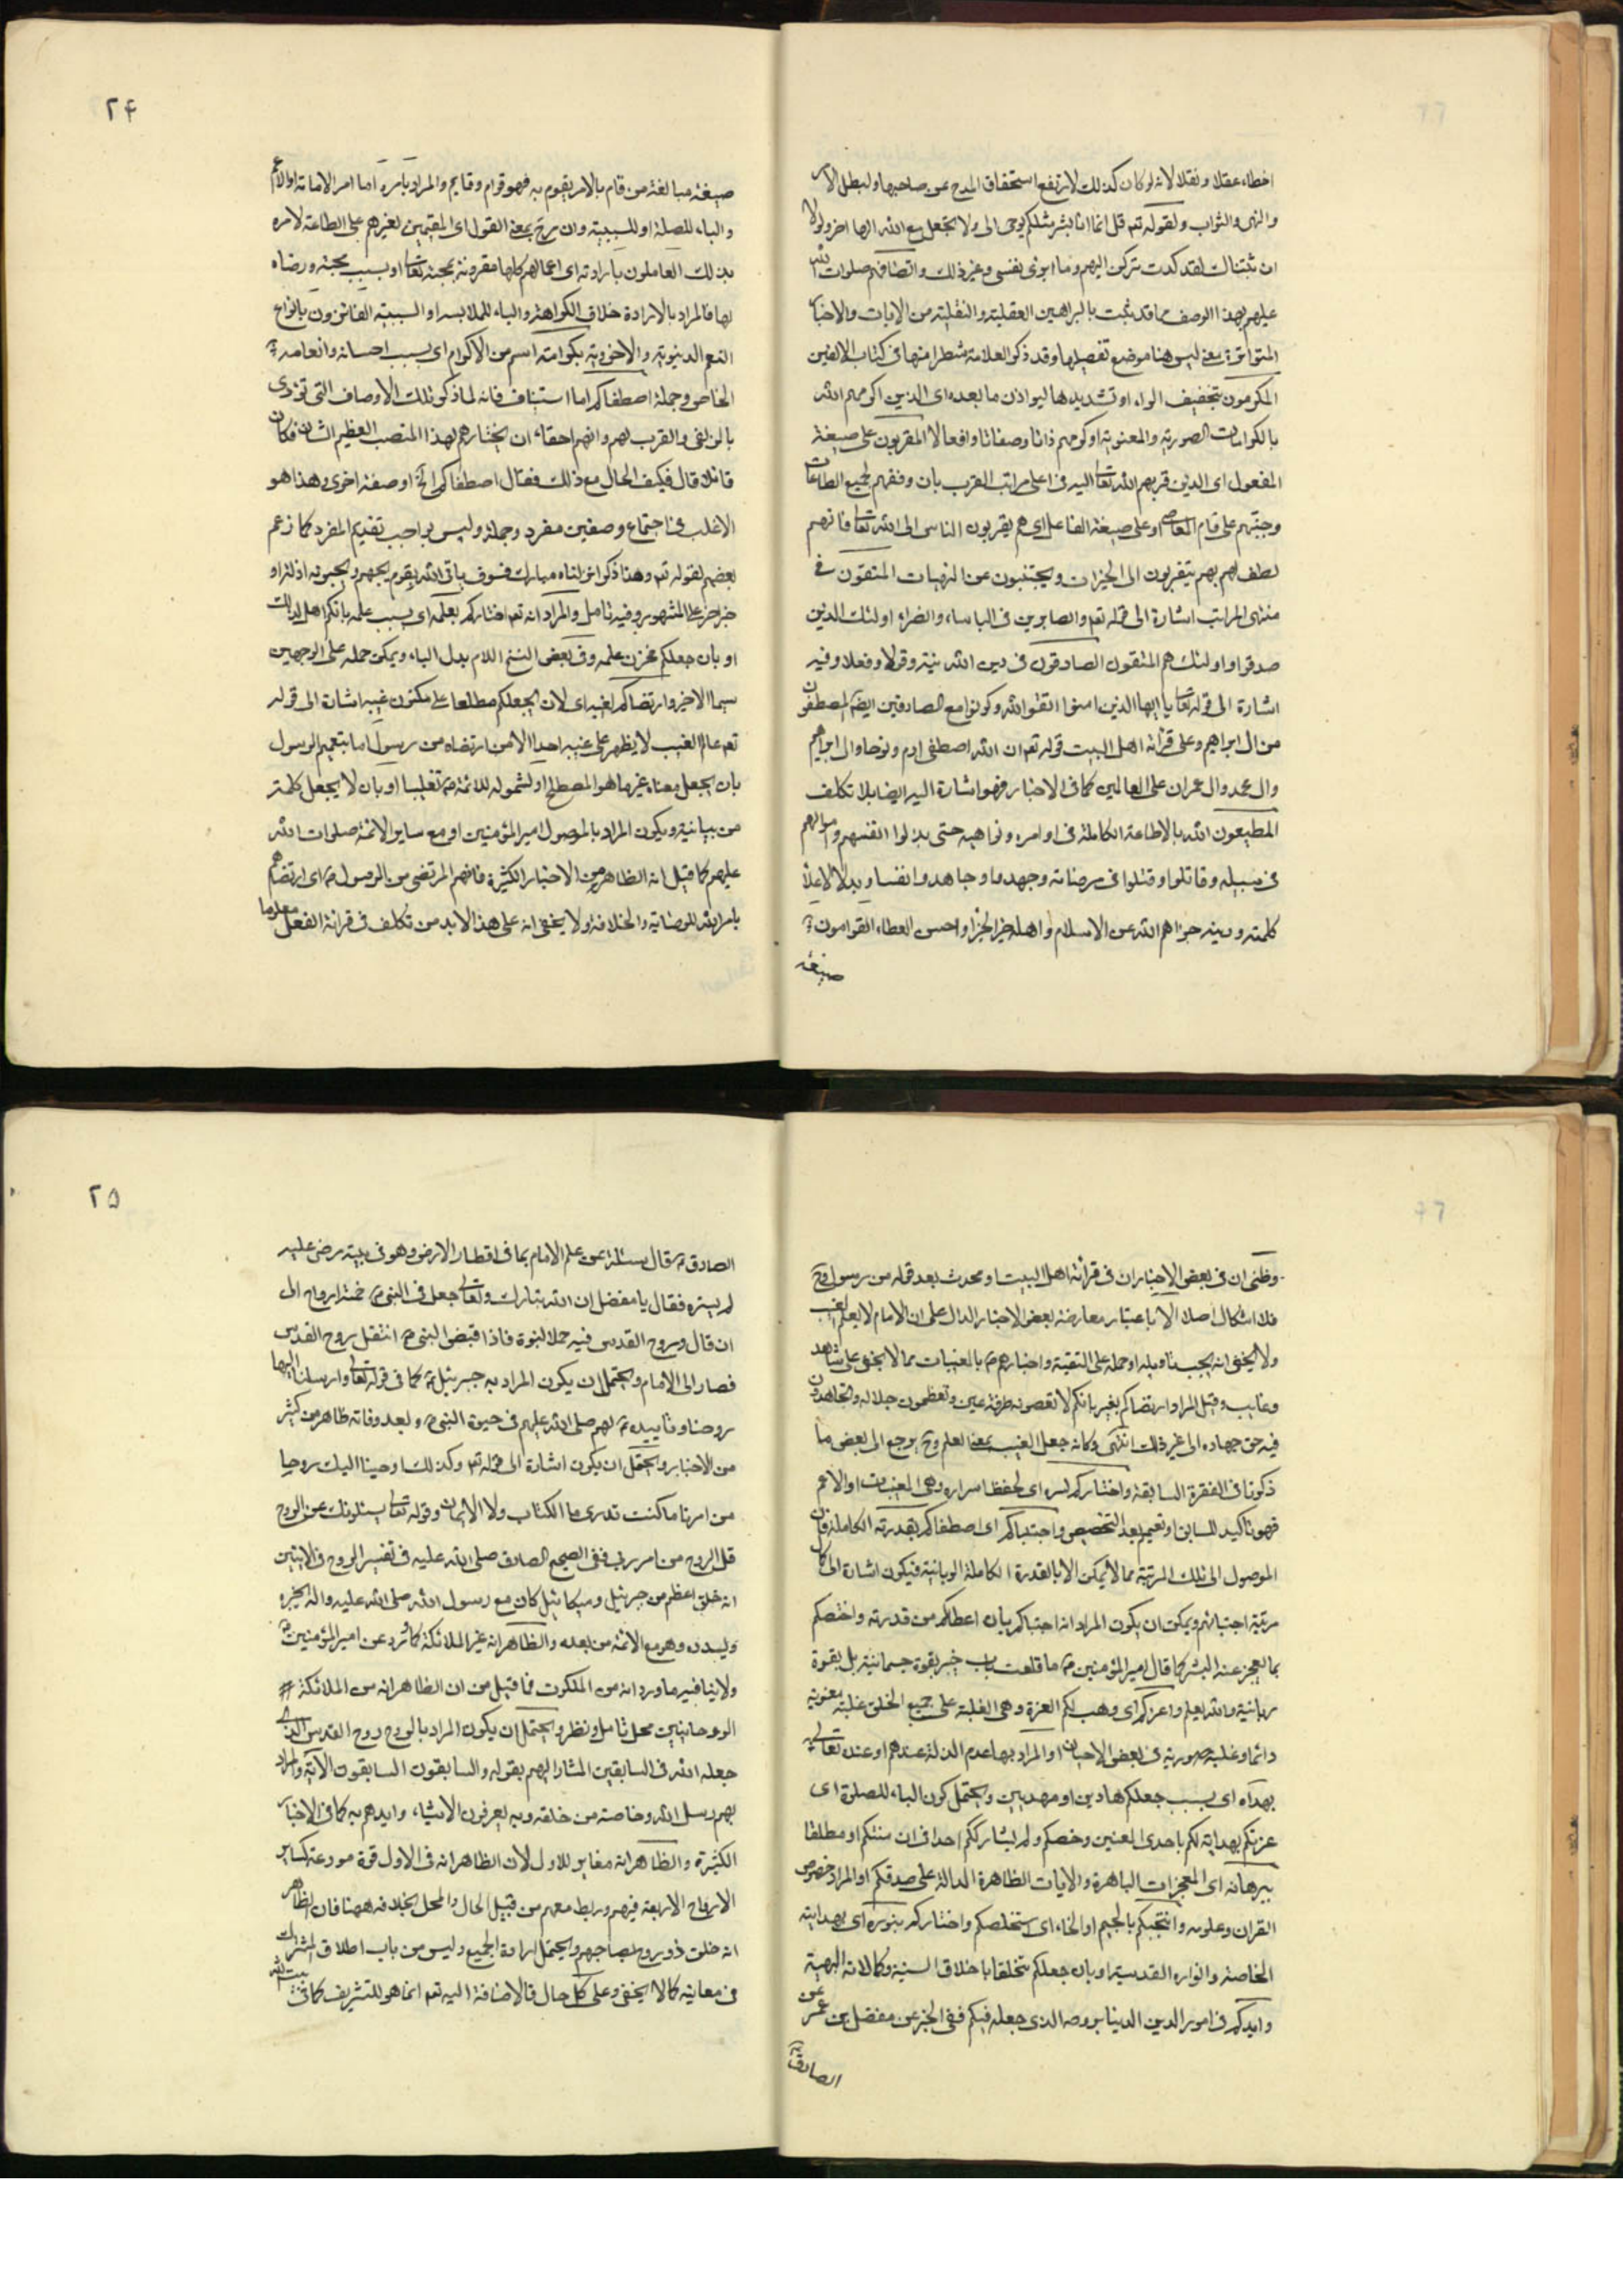 اخطاء عقلا ونقلا لانه لو كان كذلك لارتفع استحقاق المدح عن صاحبها ولبطل الامر
والنهى والثواب ولقوله تعه قل انما انا بشر مثلكم يوحى الى ولا تجعل مع الله الها اخر ولولا
ان ثبتناك لقد كدت تركن اليهم وما ابرئ نفسى وغير ذلك واتصافهم صلوات الله
عليهم بهذا الوصف مما قد ثبت بالبراهين العقلية والنقلية من الايات والاخبار
المتواترة معنى ليس هنا موضع تفصيلها وقد ذكر العلامة شطرا منها فى كتاب الالفين
المكرمون بتخفيف الراء او تشديدها ليوازن ما بعده اى الذين اكرمهم الله
بالكرامات الصورية والمعنوية او كرمهم ذاتا وصفاتا وافعالا المقربون على صيغة
المفعول اى الذين قربهم الله تعالى اليه فى اعلى مراتب القرب بان وفقهم لجميع الطاعات
وجنبهم على قام المعاصى او على صيغة الفاعل اى هم يقربون الناس الى الله تعالى فانهم
لطف لهم بهم يتقربون الى الخيرات ويجتنبون عن المنهيات المتقون فى
منتهى المراتب اشارة الى قوله تعه والصابرين فى الباساء والضراء اولئك الذين
صدقوا واولئك هم المتقون الصادقون فى دين الله نية وقولا وفعلا وفيه
اشارة الى قوله تعالى يا ايها الذين امنوا اتقوا الله وكونوا مع الصادقين ايضا المصطفون
من ال ابراهيم وعلى قرائة اهل البيت قوله تعه ان الله اصطفى ادم ونوحا وال ابراهيم
وال محمد وال عمران على العالمين كما فى الاخبار فهو اشارة اليه ايضا بلا تكلف
المطيعون الله بالاطاعة الكاملة فى اوامره ونواهيه حتى بذلوا انفسهم واموالهم
فى سبيله وقاتلوا وقتلوا فى مرضاته وجهدوا وجاهدوا نفسا وبدلا لاعلاء
كلمته ودينه جزاهم الله عن الاسلام واهله خير الجزاء واحسن العطاء القوامون
صيغة
٢۴
صيغة مبالغة من قام بالامر يقوم به فهو قوام وقايم والمراد بامره اما امر الامامة او الاعم
والباء للصلة او للسببية وان رجح بمعنى القول اى المقيمين لغيرهم على الطاعة لامره
بذلك العاملون بارادته اى اعمالهم كلها مقرونة بمحبته تعالى او بسبب محبته ورضاه
لها فالمراد بالارادة خلاف الكراهة والباء للملابسة او السببية الفائزون بانواع
النعم الدنيوية والاخروية بكرامته اسم من الاكرام اى بسبب احسانه وانعامه
الخاص وجملة اصطفاكم اما استيناف فانه لما ذكر تلك الاوصاف التى تؤذى
بالزلفى والقرب لهم وانهم احقاء ان يختارهم لهذا المنصب العظيم الشان فكان
قائلا قال فكيف الحال مع ذلك فقال اصطفاكم الخ او صفة اخرى وهذا هو
الاغلب فى اجتماع وصفين مفرد وجملة وليس بواجب تقديم المفرد كما زعم
بعضهم لقوله تعه وهذا ذكر انزلناه مبارك فسوف ياتى الله بقوم يحبهم ويحبونه اذلة او
خبر اخر على المشهور وفيه تامل والمراد انه تعه اختاركم بعلمه اى بسبب علمه بانكم اهل لذلك
او بان جعلكم مخزن علمه وفى بعض النسخ اللام بدل الباء ويمكن حمله على الوجهين
سيما الاخير وارتضاكم لغيبه اى لان يجعلكم مطلعا على مكنون غيبه اشارة الى قوله
تعه عالم الغيب لا يظهر على غيبه احدا الا من ارتضاه من رسول اما بتعميم الرسول
بان يجعل معناه غير ما هو المصطلح او لشموله للائمة تغليبا او بان لا يجعل كلمة
من بيانية ويكون المراد بالموصول امير المؤمنين او مع ساير الائمة صلوات الله
عليهم كما قيل انه الظاهر من الاخبار الكثيرة فانهم المرتضى من الرسول اى ارتضاهم
بامر الله للوصاية والخلافة ولا يخفى انه على هذا لابد من تكلف فى قرائة الفعل معلوما
وظنى ان فى بعض الاخبار ان فى قرائة اهل البيت او محدث بعد قوله من رسول وح
فلا اشكال اصلا الا باعتبار معارضة بعض الاخبار الدال على ان الامام لا يعلم الغيب
ولا يخفى انه يجب تاويله او حمله على التقية واخبارهم بالمغيبات مما لا يخفى على شاهد
وغايب وقيل المراد ارتضاكم بغير بانكم لا تعصونه طرفة عين وتعظمون جلاله وتجاهدون
فيه حق جهاده الى غير ذلك انتهى وكانه جعل الغيب بمعنى العلم وح يرجع الى بعض ما
ذكرنا فى الفقرة السابقة واختاركم لسره اى لحفظ اسراره وهى المغيبات او الاعم
فهو تاكيد للسابق او تعميم بعد التخصيص واجتباكم اى اصطفاكم بقدرته الكاملة فان
الوصول الى تلك المرتبة مما لا يمكن الا بالقدرة الكاملة الربانية فيكون اشارة الى كمال
مرتبة اجتبائهم ويمكن ان يكون المراد انه اجتباكم بان اعطاكم من قدرته واختصكم
بما يعجز عنه البشر كما قال امير المؤمنين ما قلعت باب خيبر بقوة جسمانية بل بقوة
ربانية والله يعلم واعزكم اى وهب لكم العزة وهى الغلبة على جميع الخلق غلبة معنوية
دائما وغلبة صورية فى بعض الاحيان او المراد بها عدم الذلة عندهم او عنده تعالى
بهداه اى بسبب جعلكم هادين او مهديين ويحتمل كون الباء للصلة اى
عززكم بهدايته لكم باحدى المعنيين وخصكم ولم يشارككم احدا فى ان مثلكم او مطلقا
ببرهانه اى المعجزات الباهرة والايات الظاهرة الدالة على صدقكم او المراد خصوص
القران وعلومه وانتجبكم بالجيم او الخاء اى استخلصكم واختاركم بنوره اى بهدايته
الخاصة وانواره القدسية او بان جعلكم متخلقا باخلاقه السنية وكمالاته البهية
وايدكم فى امور الدين الدينا بروحه الذى جعله فيكم ففى الخبر عن مفضل بن عمر عن
الصادق
٢۵
الصادق قال سئلته عن علم الامام بما فى اقطار الارض وهو فى بيته مرخى عليه
لم يستره فقال يا مفضل ان الله تبارك وتعالى جعل فى النبى خمسة ارواح الى
ان قال وروح القدس فيه حمل النبوة فاذا قبض النبى انتقل روح القدس
فصار الى الامام ويحتمل ان يكون المراد به جبرئيل كما فى قوله تعالى وارسلنا اليها
روحنا وتاييده لهم صلى الله عليهم فى حيوة النبى وبعد وفاته ظاهر من كثير
من الاخبار ويحتمل ان يكون اشارة الى قوله تعه وكذلك اوحينا اليك روحا
من امرنا ما كنت تدرى ما الكتاب ولا الايمان وقوله تعالى يسئلونك عن الروح
قل الروح من امر ربى ففى الصحيح الصادق صلى الله عليه فى تفسير الروح فى الايتين
انه خلق اعظم من جبرئيل وميكائيل كان مع رسول الله صلى الله عليه واله يخبره
ويسدده وهو مع الائمة من بعده والظاهر انه غير الملائكة كما ورد عن امير المؤمنين
ولا ينافيه ما ورد انه من الملكوت فما قيل من ان الظاهر انه من الملائكة
الروحانيين محل تامل ونظر ويحتمل ان يكون المراد بالروح روح القدس الذى
جعله الله فى السابقين المشار اليهم بقوله والسابقون السابقون الاية والمراد
بهم رسل الله وخاصته من خلقه وبه يعرفون الاشياء وايدهم به كما فى الاخبار
الكثيرة والظاهر انه مغاير للاول لان الظاهر انه فى الاول قوة مودعة كساير
الارواح الاربعة فيهم وربط معهم من قبيل الحال والمحل بخلافه ههنا فان الظاهر
انه خلق ذو روح يصاحبهم ويحتمل ارادة الجميع وليس من باب اطلاق المشترك
فى معانيه كما لا يخفى وعلى كل حال فالاضافة اليه تعه انما هو للتشريف كما فى بيت الله